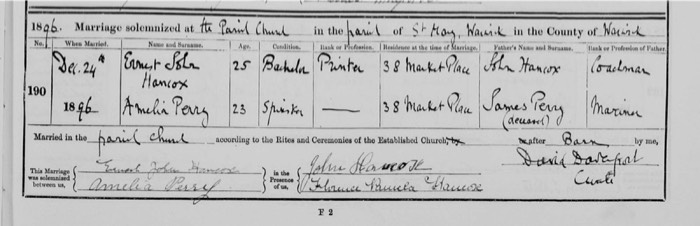 1896. Marriage solemnized at the Parish Church in the parish of St Mary, Warwick in the County of Warwick
No. When Married. Name and Surname. Age. Condition. Rank or Profession. Residence at the time of Marriage. Father's Name and Surname. Rank or Profession of Father
190 Dec. 24th 1896 Ernest John Hancox 25 Bachelor Printer 38 Market Place John Hancox Coachman
Amelia Perry 23 Spinster — 38 Market Place James Perry (deceased) Mariner
Married in the parish church according to the Rites and Ceremonies of the Established Church, by after Banns by me,
This Marriage was solemnized between us, Ernest John Hancox Amelia Perry in the Presence of us, John Hancox Florence Hancox David Davenport Curate
F 2